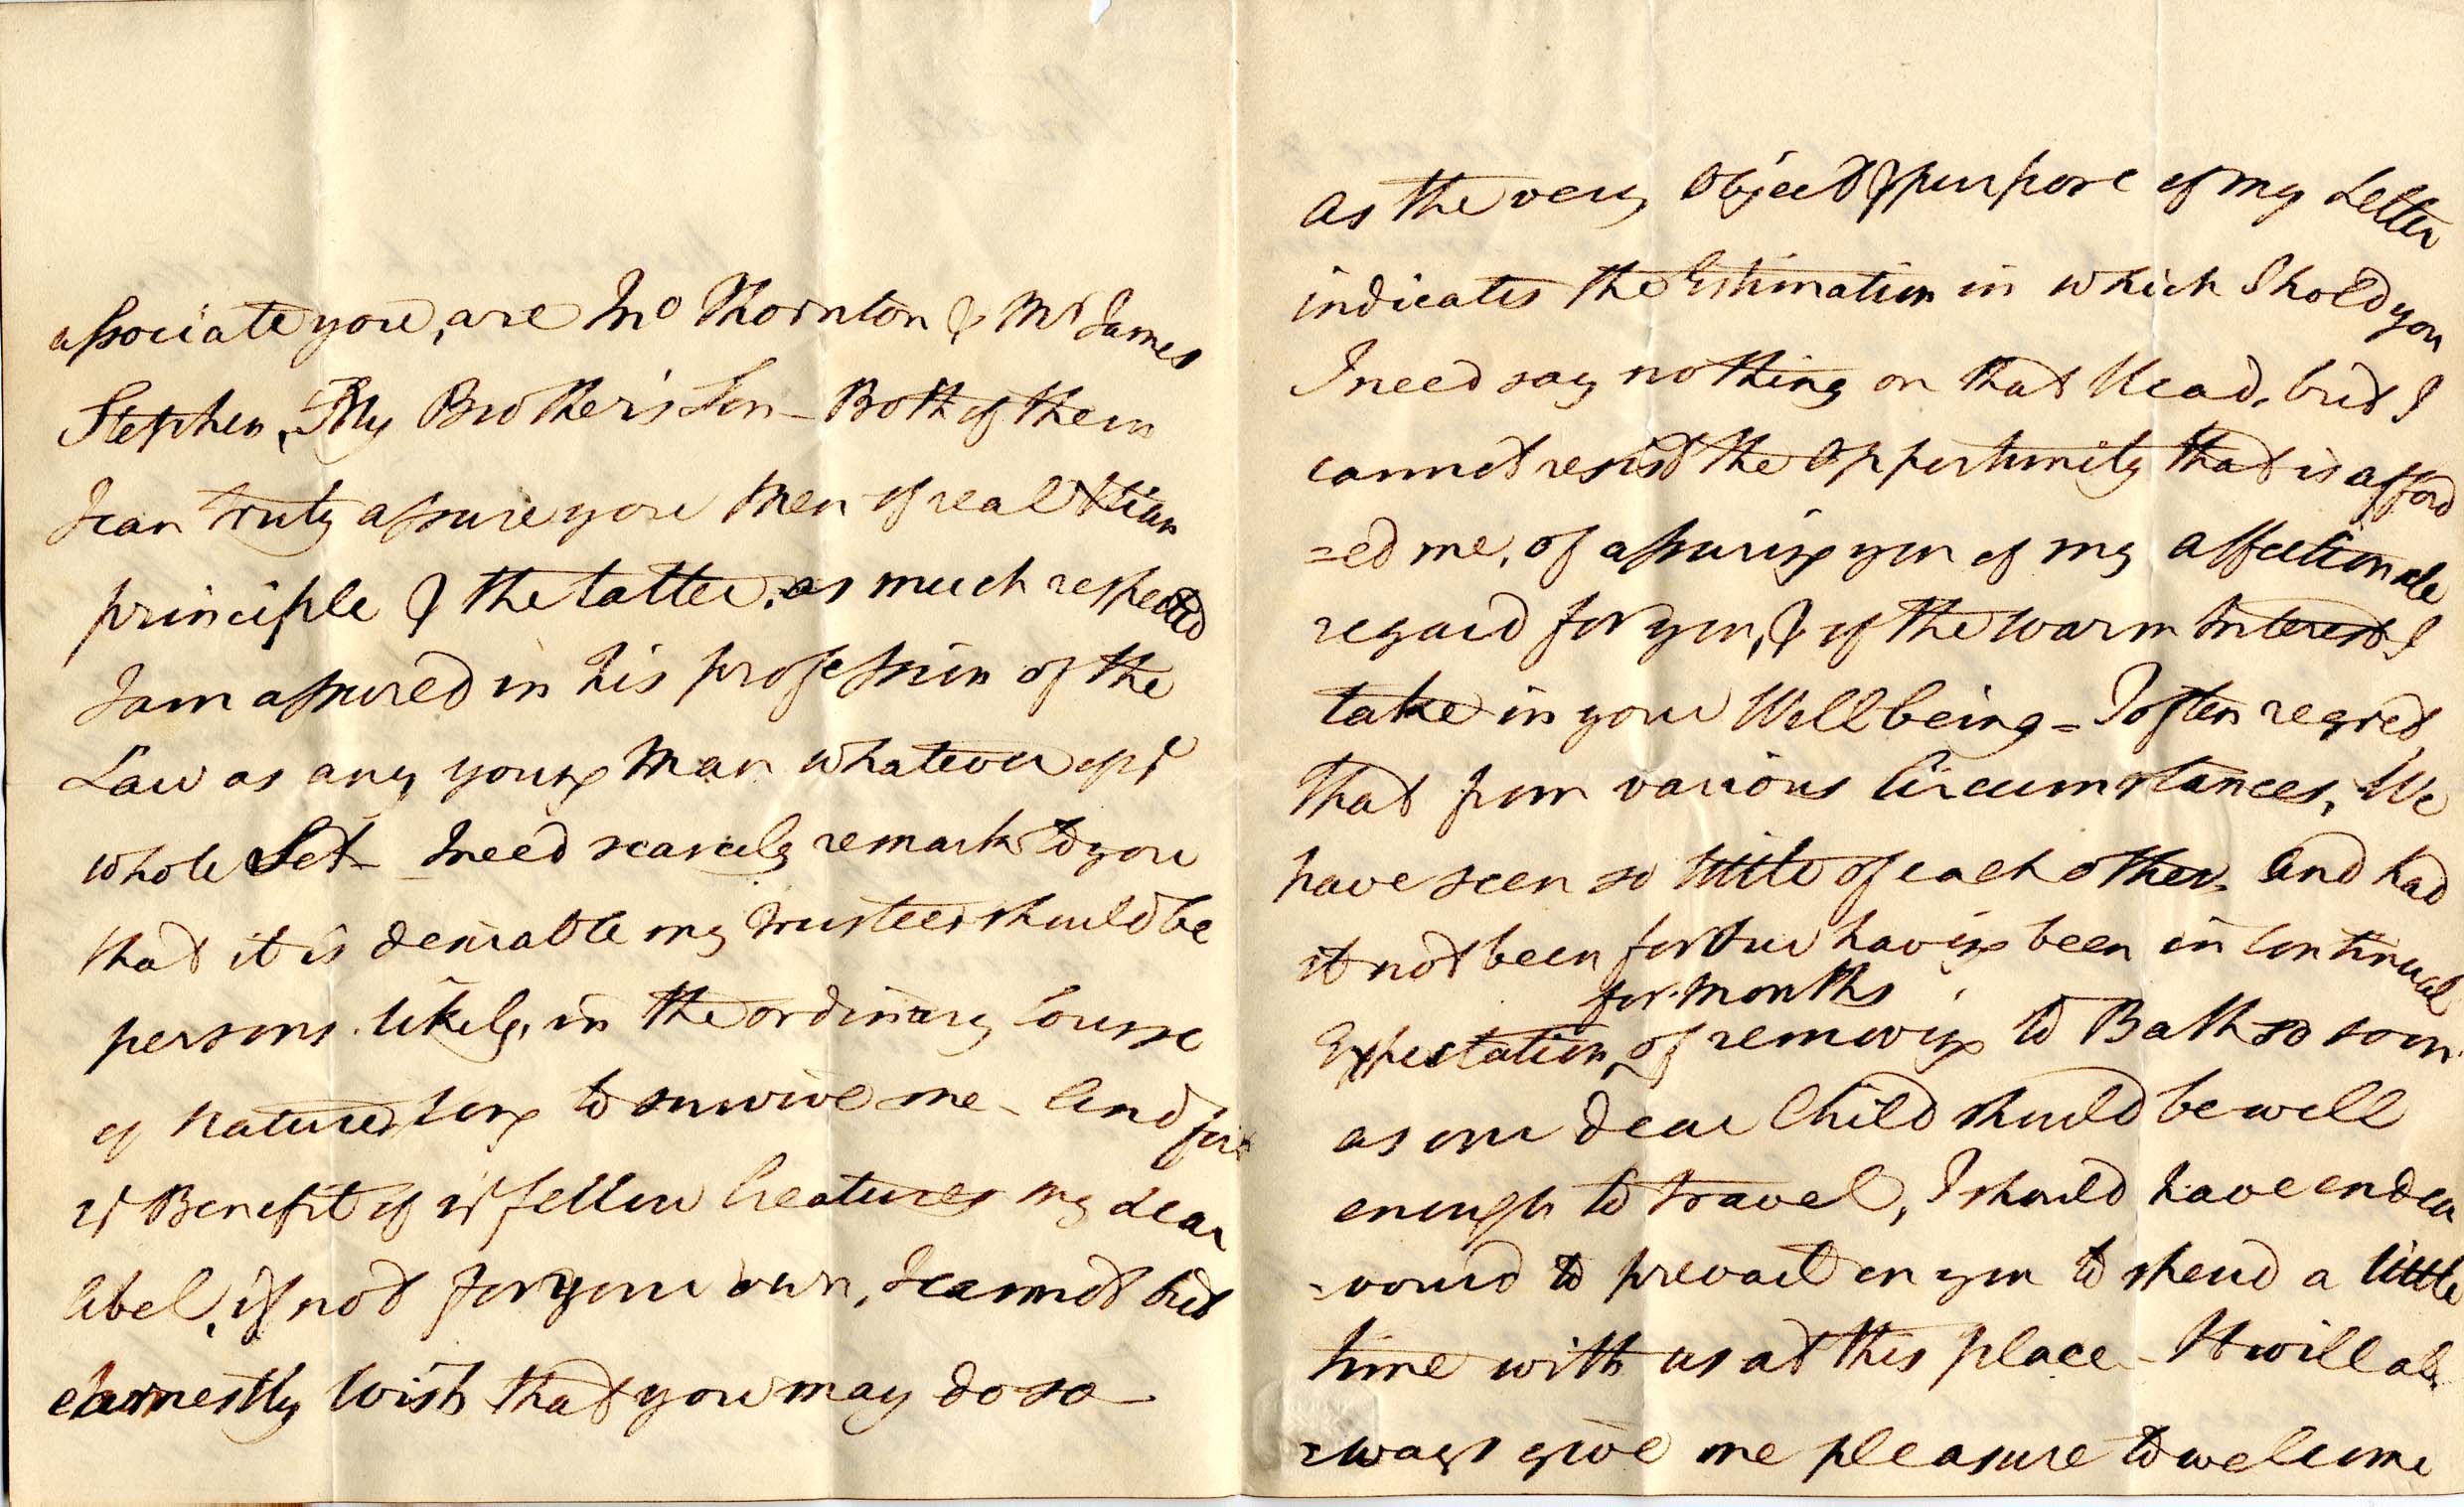 associate you, are Jno Thornton & Mr James
Stephen, My Brother's Son - Both of them
I can truly assure you Men of real Xtian
principle & the latter, as much respected
I am assured in his profession of the
Law as any young Man whatever of ye
whole Set - I need scarcely remark to you
that it is desirable my Trustees should be
persons likely, in the ordinary Course
of Nature, long to survive me - And for
ye Benefit of yr fellow Creatures my dear
Abel, if not for your own, I cannot but
earnestly wish that you may do so -
as the very Object & purpose of my Letter
indicates the Estimation in which I hold you
I need say nothing on that Head, but I
cannot resist the Opportunity that is afford
=ed me, of assuring you of my affectionate
regard for you, & of the warm Interest I
take in your Wellbeing - I often regret
that from various Circumstances, We
have seen so little of each other. And had
it not been for our having been in Continual
for Months
Expectation of removing to Bath so soon
as our dear Child should be well
enough to travel, I should have endea
=vourd to prevail on you to spend a little
time with us at this place - It will al
=ways give me pleasure to welcome